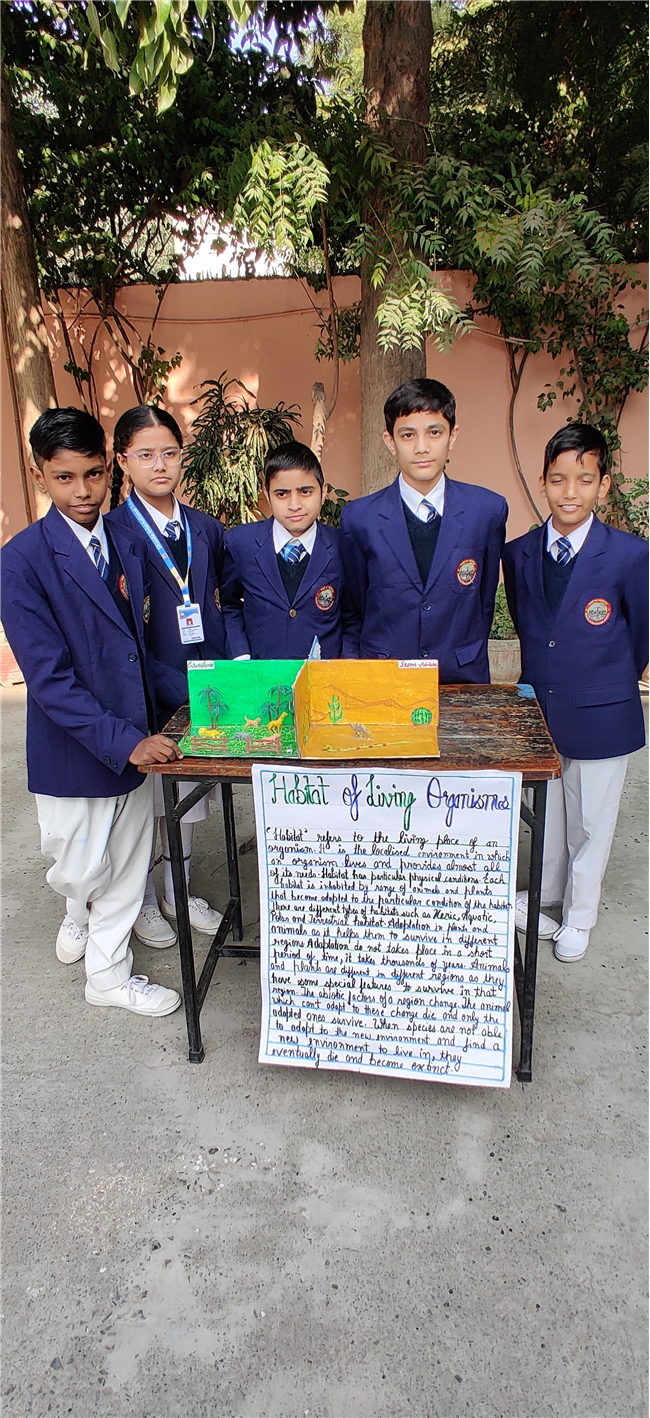 Desert Habitat
Habitat of Living Organisms
"Habitat" refers to the living place of an
organism. It is the localised environment in which
an organism lives and provides almost all
of its needs. Habitat has particular physical conditions. Each
habitat is inhabited by range of animals and plants
that become adapted to the particular condition of the habitat.
There are different types of habitats such as Xeric, Aquatic,
Polar and Terrestrial habitat. Adaptation in plants and
animals as it helps them to survive in different
regions Adaptation do not takes place in a short
period of time, it takes thousands of years. Animals
and plants are different in different regions as they
have some special features to survive in that
region. The abiotic factors of a region change. The animal
which can't adapt to these change die and only the
adapted ones survive. When species are not able
to adapt to the new environment and find a
new environment to live in, they
eventually die and become extinct.